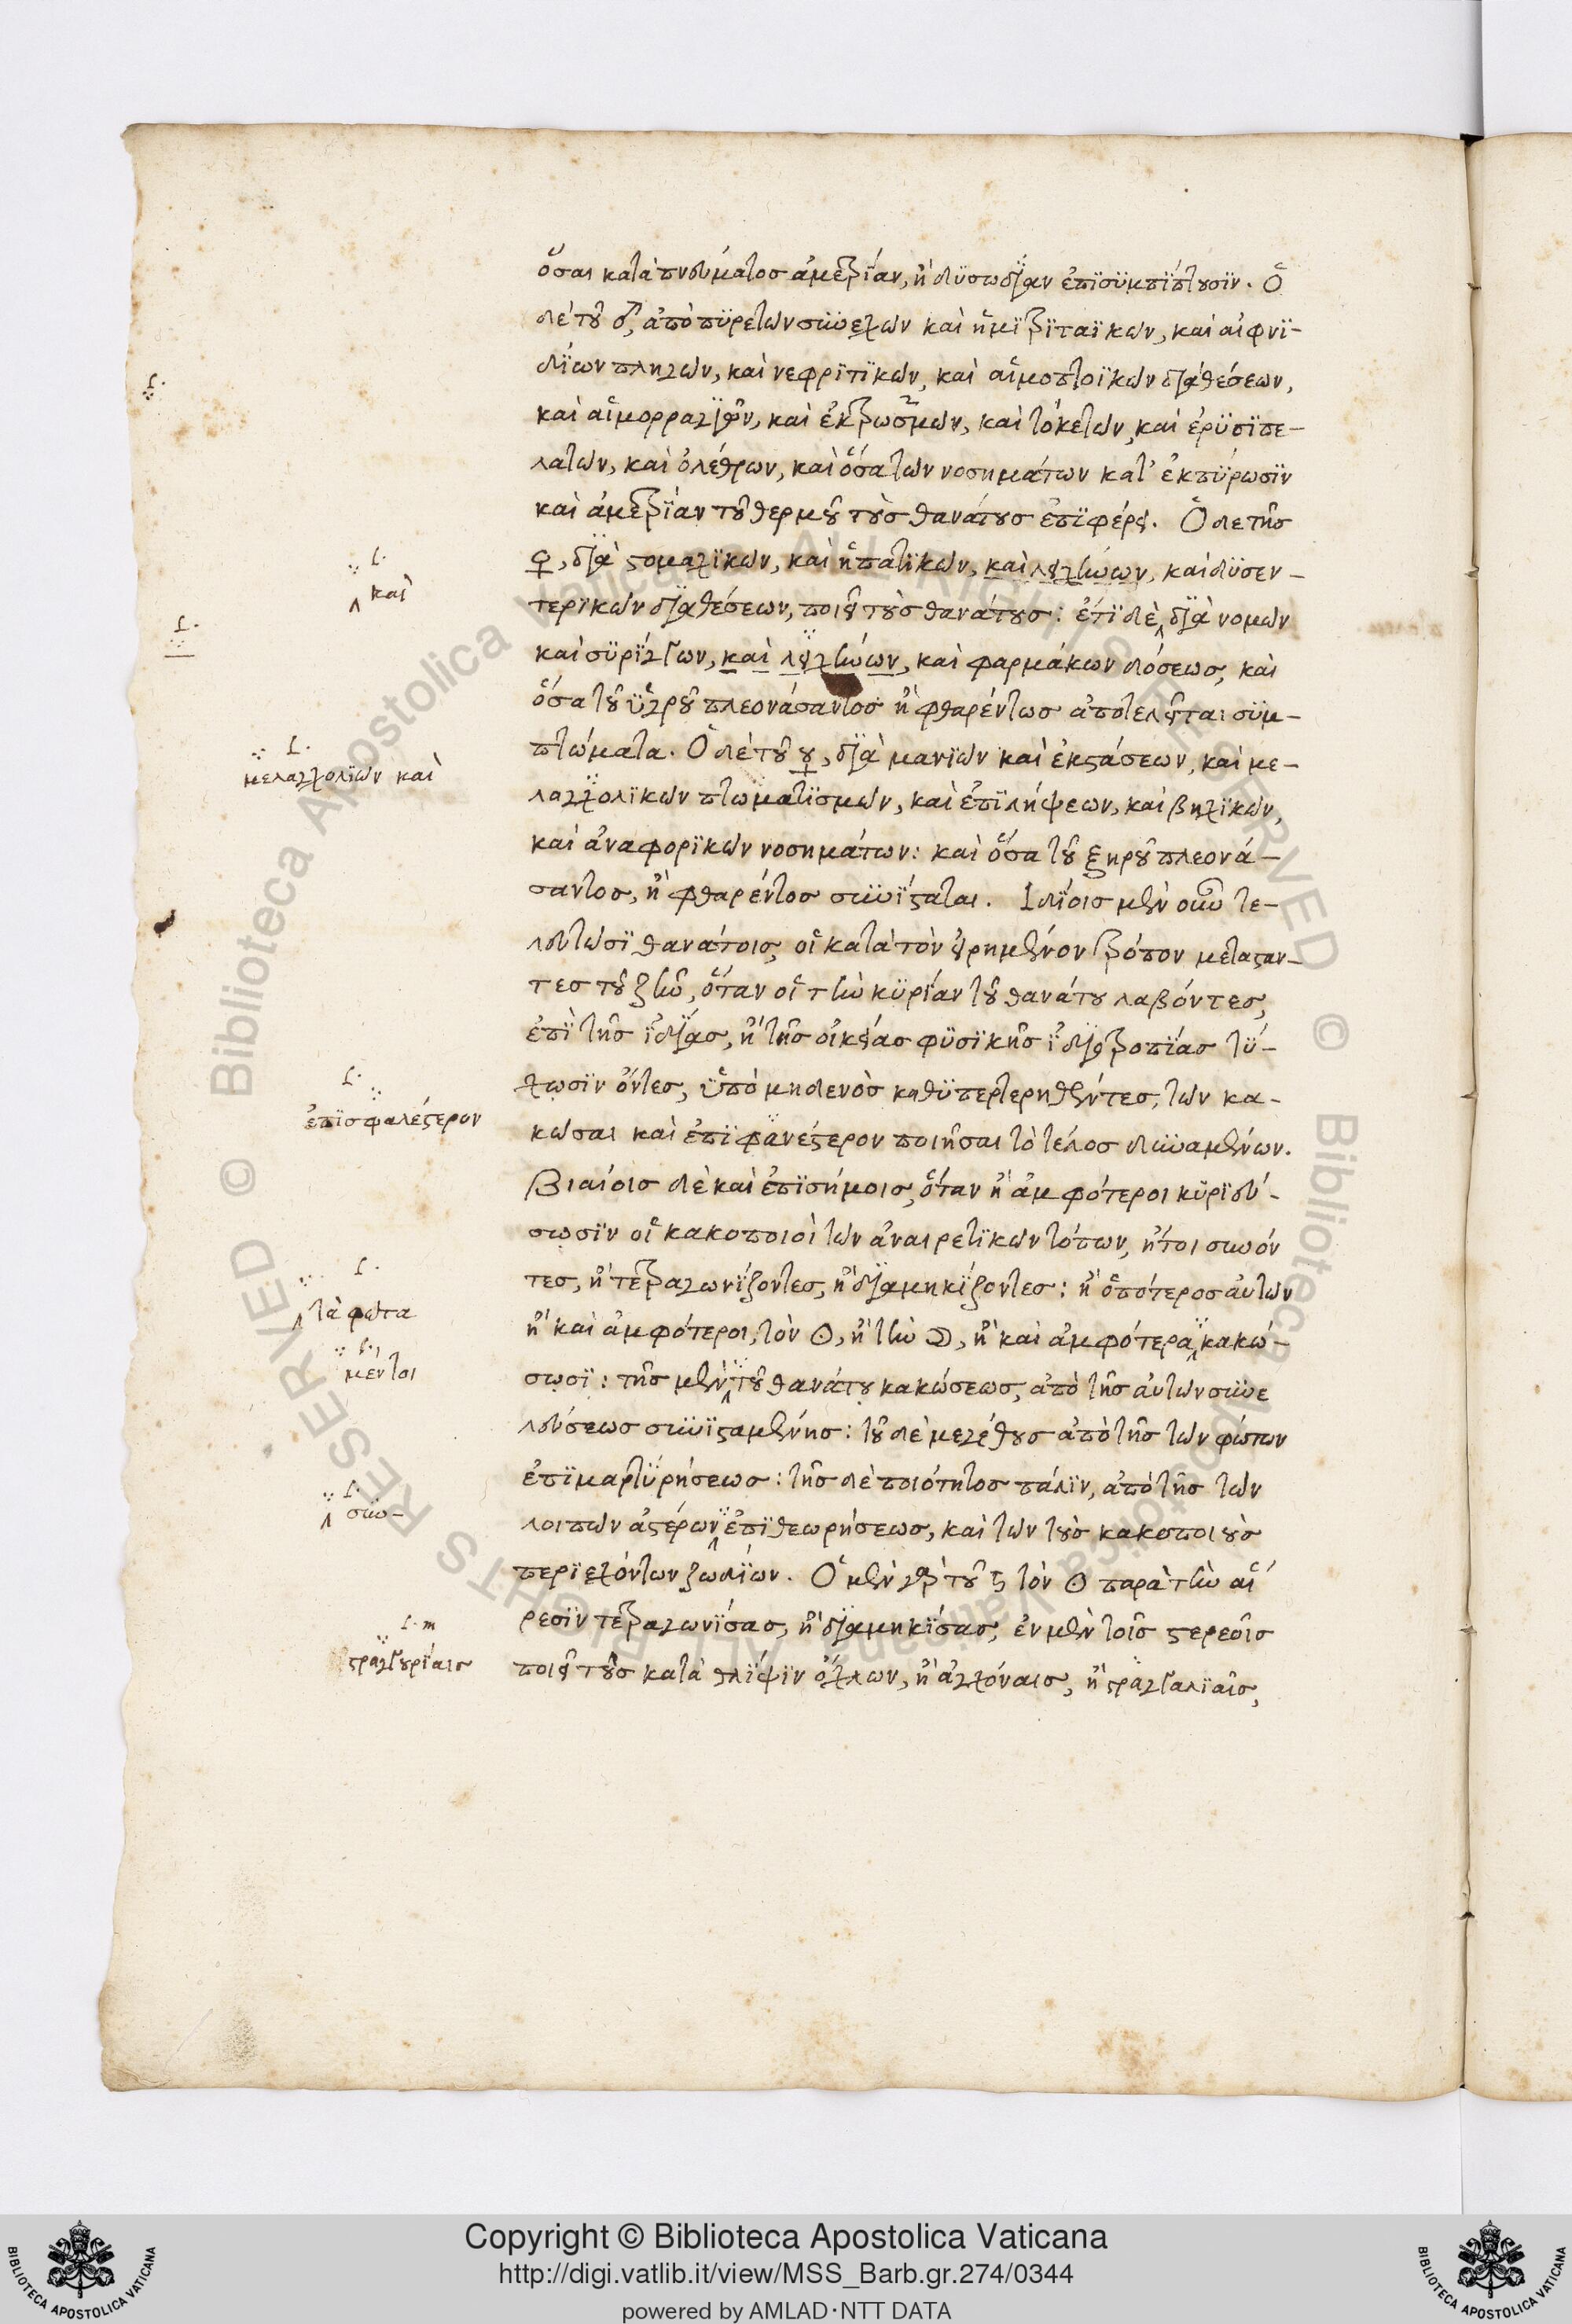 ὅσαι κατὰ πνεύματος ἀμετρίαν, ἢ δυσωδίαν ἐπισυμπίπτουσιν. Ὁ
δὲ τοῦ ♂, ἀπὸ πυρετῶν συνεχῶν καὶ ἡμιτριταϊκῶν, καὶ αἰφνι-
δίων πληγῶν, καὶ νεφριτικῶν, καὶ αἱμοπτοϊκῶν διαθέσεων,
καὶ αἱμορραγιῶν, καὶ ἐκτρωσμῶν, καὶ τοκετῶν, καὶ ἐρυσιπε-
λάτων, καὶ ὀλέθρων, καὶ ὅσα τῶν νοσημάτων κατ’ ἐκπύρωσιν
καὶ ἀμετρίαν τοῦ θερμοῦ τοὺς θανάτους ἐπιφέρει. Ὁ δὲ τῆς
♀, διὰ στομαχικῶν, καὶ ἡπατικῶν, καὶ λειχήνων, καὶ δυσεν-
τερικῶν διαθέσεων, ποιεῖ τοὺς θανάτους: ἔτι δὲ διὰ νομῶν
καὶ
καὶ συρίγγων, καὶ λειχήνων, καὶ φαρμάκων δόσεως, καὶ
ὅσα τοῦ ὑγροῦ πλεονάσαντος ἢ φθαρέντως ἀποτελεῖται συμ-
πτώματα. Ὁ δὲ τοῦ ☿, διὰ μανιῶν καὶ ἐκστάσεων, καὶ με-
μελαγχολιῶν καὶ
λαγχολικῶν πτωματισμῶν, καὶ ἐπιλήψεων, καὶ βηχικῶν,
καὶ ἀναφορικῶν νοσημάτων: καὶ ὅσα τοῦ ξηροῦ πλεονά-
σαντος, ἢ φθαρέντος συνίσταται. Ἰδίοις μὲν οὖν τε-
λευτῶσι θανάτοις, οἱ κατὰ τὸν εἰρημένον τρόπον μεταστάν-
τες τοῦ ζῆν, ὅταν οἱ τὴν κυρίαν τοῦ θανάτου λαβόντες,
ἐπὶ τῆς ἰδίας, ἢ τῆς οἰκείας φυσικῆς ἰδιοτροπίας τύ-
χωσιν ὄντες, ὑπὸ μηδενὸς καθυπερτερηθέντες, τῶν κα-
κῶσαι καὶ ἐπιφανέστερον ποιῆσαι τὸ τέλος δυναμένων.
ἐπισφαλέστερον
Βιαίοις δὲ καὶ ἐπισήμοις, ὅταν ἢ ἀμφότεροι κυριεύ-
σωσιν οἱ κακοποιοὶ τῶν ἀναιρετικῶν τόπων, ἤτοι συνόν
τες, ἢ τετραγωνίζοντες, ἢ διαμηκίζοντες: ἢ ὁπότερος αὐτῶν
ἢ καὶ ἀμφότεροι, τὸν ☉, ἢ τὴν ☽, ἢ καὶ ἀμφότερα κακώ-
τὰ φῶτα
σωσι: τῆς μὲν τοῦ θανάτου κακώσεως, ἀπὸ τῆς αὐτῶν συνε
μέντοι
λεύσεως συνισταμένης: τοῦ δὲ μεγέθους ἀπὸ τῆς τῶν φώτων
ἐπιμαρτυρήσεως: τῆς δὲ ποιότητος πάλιν, ἀπὸ τῆς τῶν
λοιπῶν ἀστέρων ἐπιθεωρήσεως, καὶ τῶν τοὺς κακοποιοὺς
συν-
περιεχόντων ζωδίων. Ὁ μὲν γὰρ τοῦ ♄ τὸν ☉ παρὰ τὴν αἵ
ρεσιν τετραγωνίσας, ἢ διαμηκίσας, ἐν μὲν τοῖς στερεοῖς
ποιεῖ τοὺς κατὰ θλίψιν ὄχλων, ἢ ἀγχόναις, ἢ στραγγαλιαῖς,
στραγγουρίαις
Copyright © Biblioteca Apostolica Vaticana
http://digi.vatlib.it/view/MSS_Barb.gr.274/0344
powered by AMLAD·NTT DATA